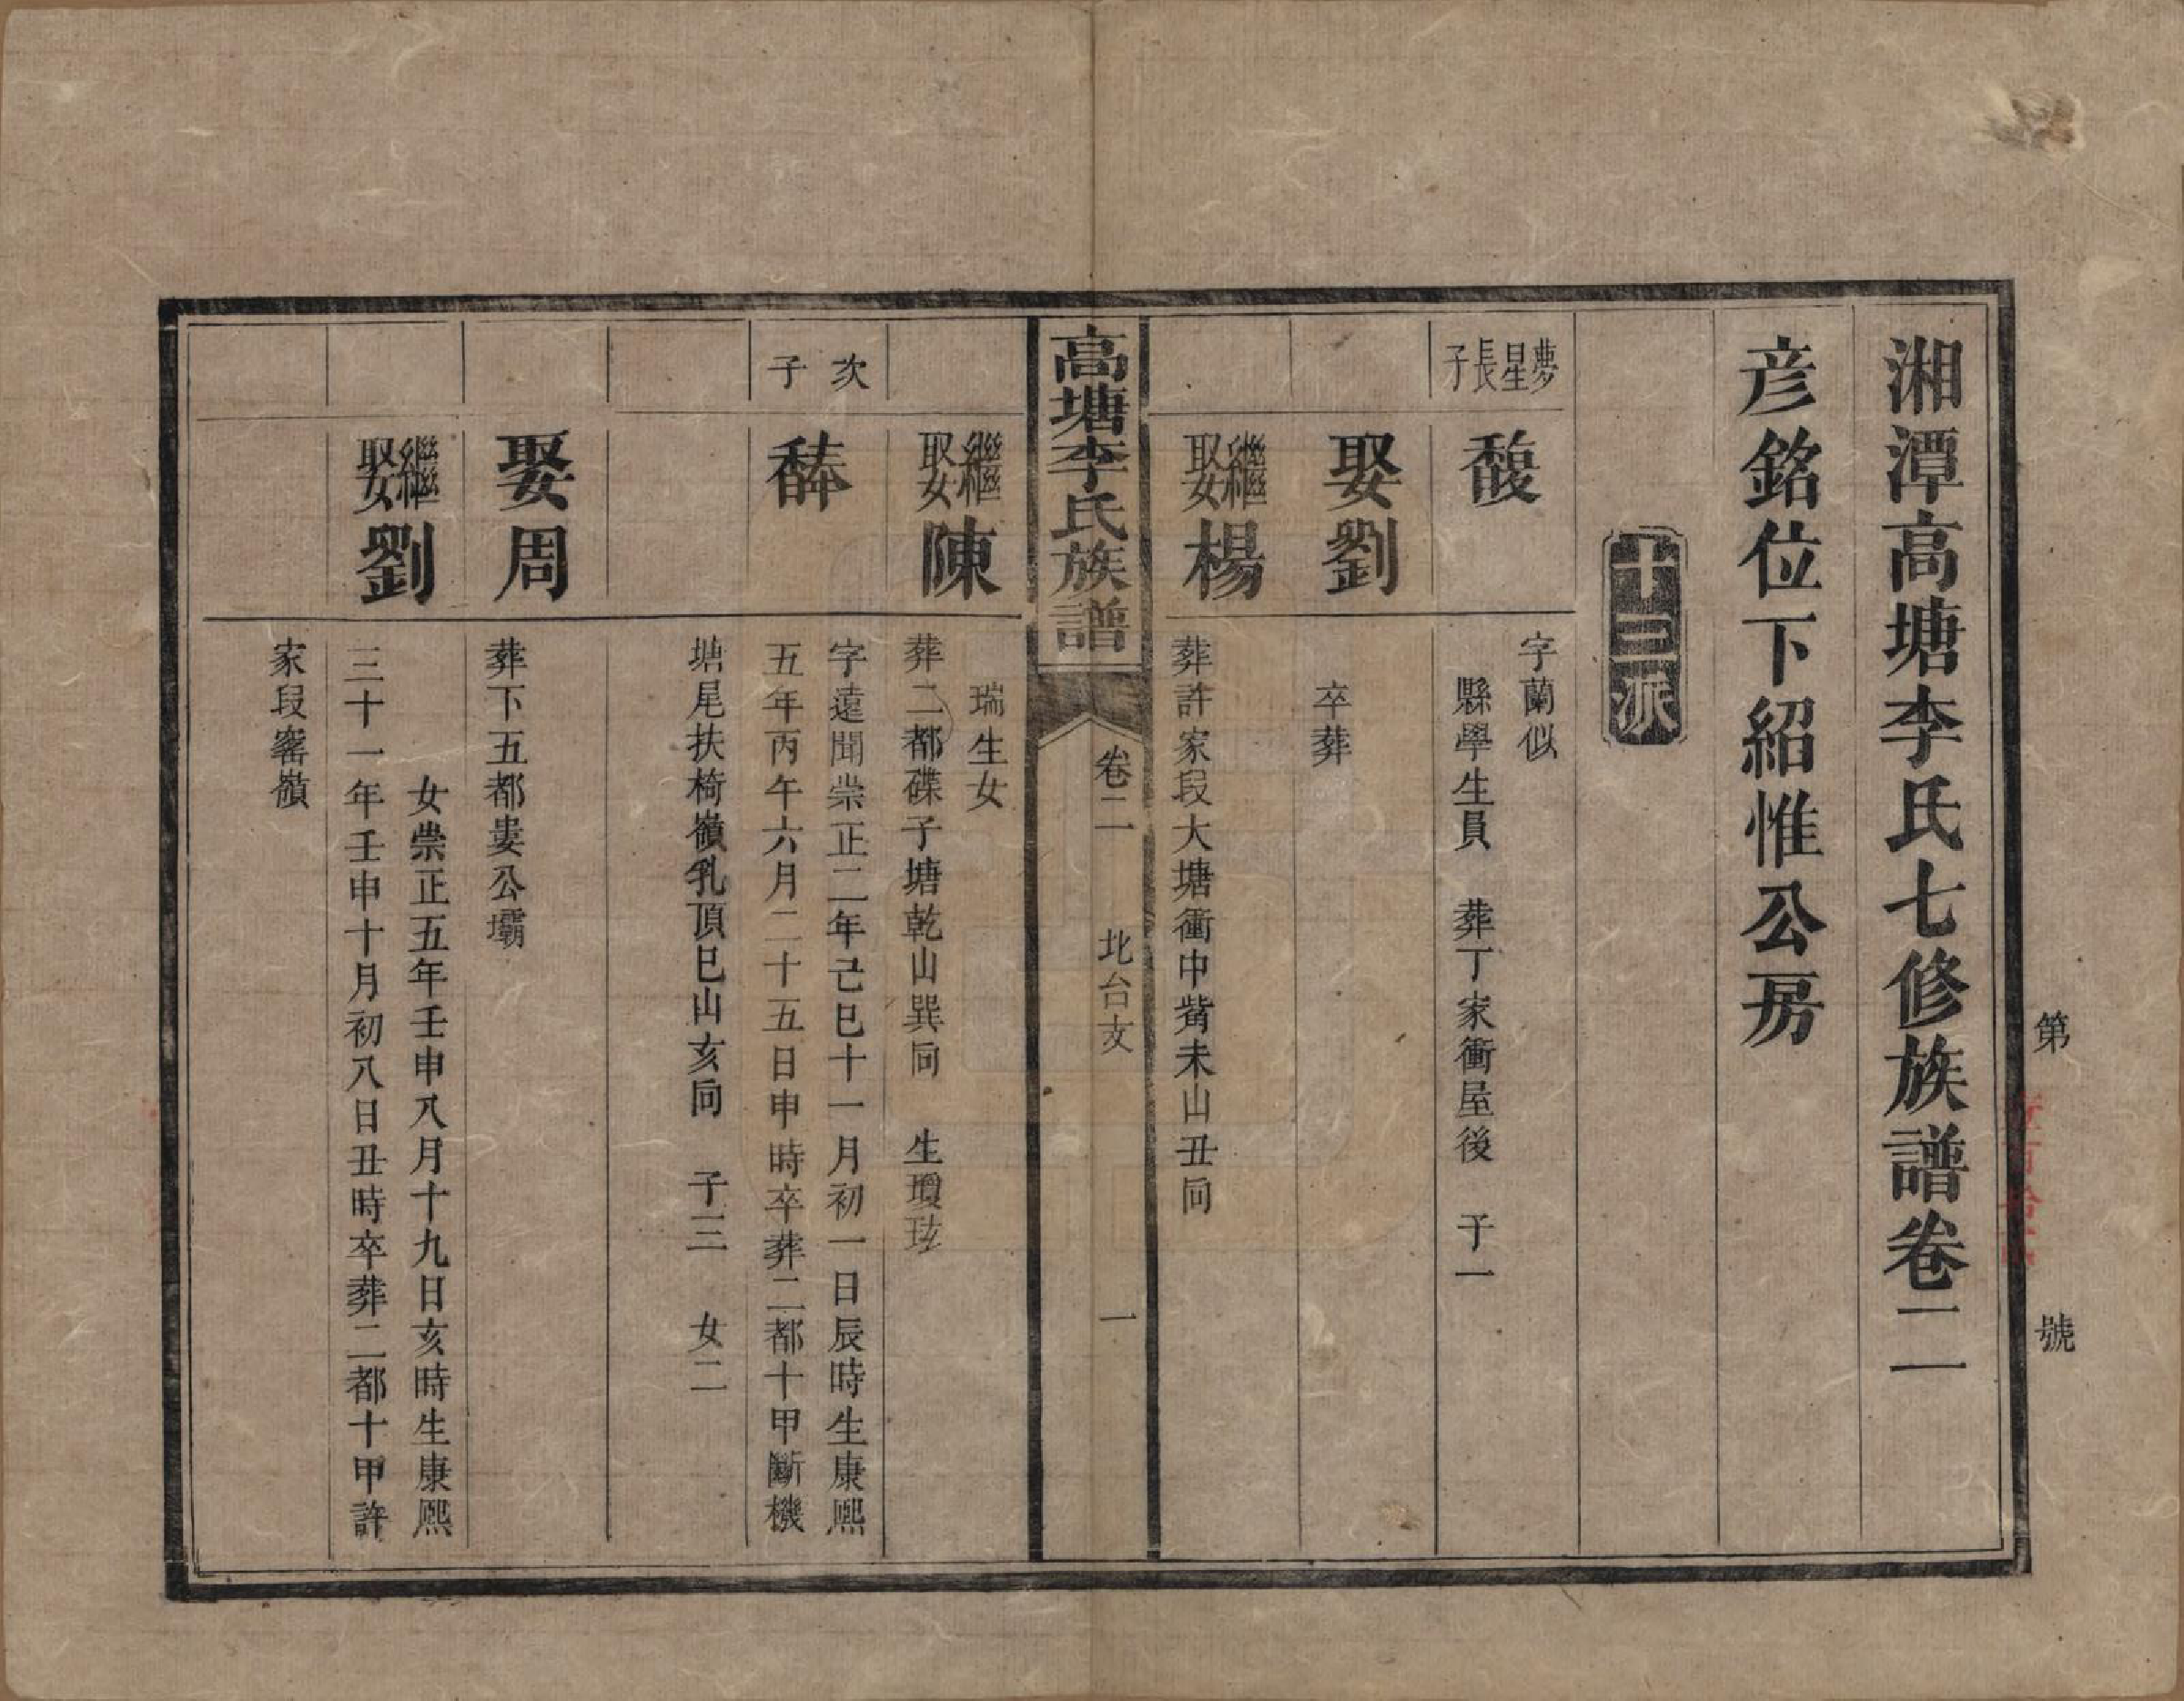 第　號
湘潭高塘李氏七修族譜卷二一
彦銘位下紹惟公房
十三派
夢星長子
馥
字蘭似
縣學生員　葬丁家衝屋後　子一
娶劉
卒葬
繼娶楊
葬許家段大塘衝中嵴未山丑向
高塘李氏族譜
卷二
北台支
一
繼娶陳
瑞生女
葬二都磜子塘乾山巽向　生瓊玹
次子
䅭
字遠聞崇正二年己巳十一月初一日辰時生康熙
五年丙午六月二十五日申時卒葬二都十甲斷機
塘尾扶椅嶺乳頂巳山亥向　子三　女二
娶周
葬下五都婁公壩
繼娶劉
女崇正五年壬申八月十九日亥時生康熙
三十一年壬申十月初八日丑時卒葬二都十甲許
家段窰嶺